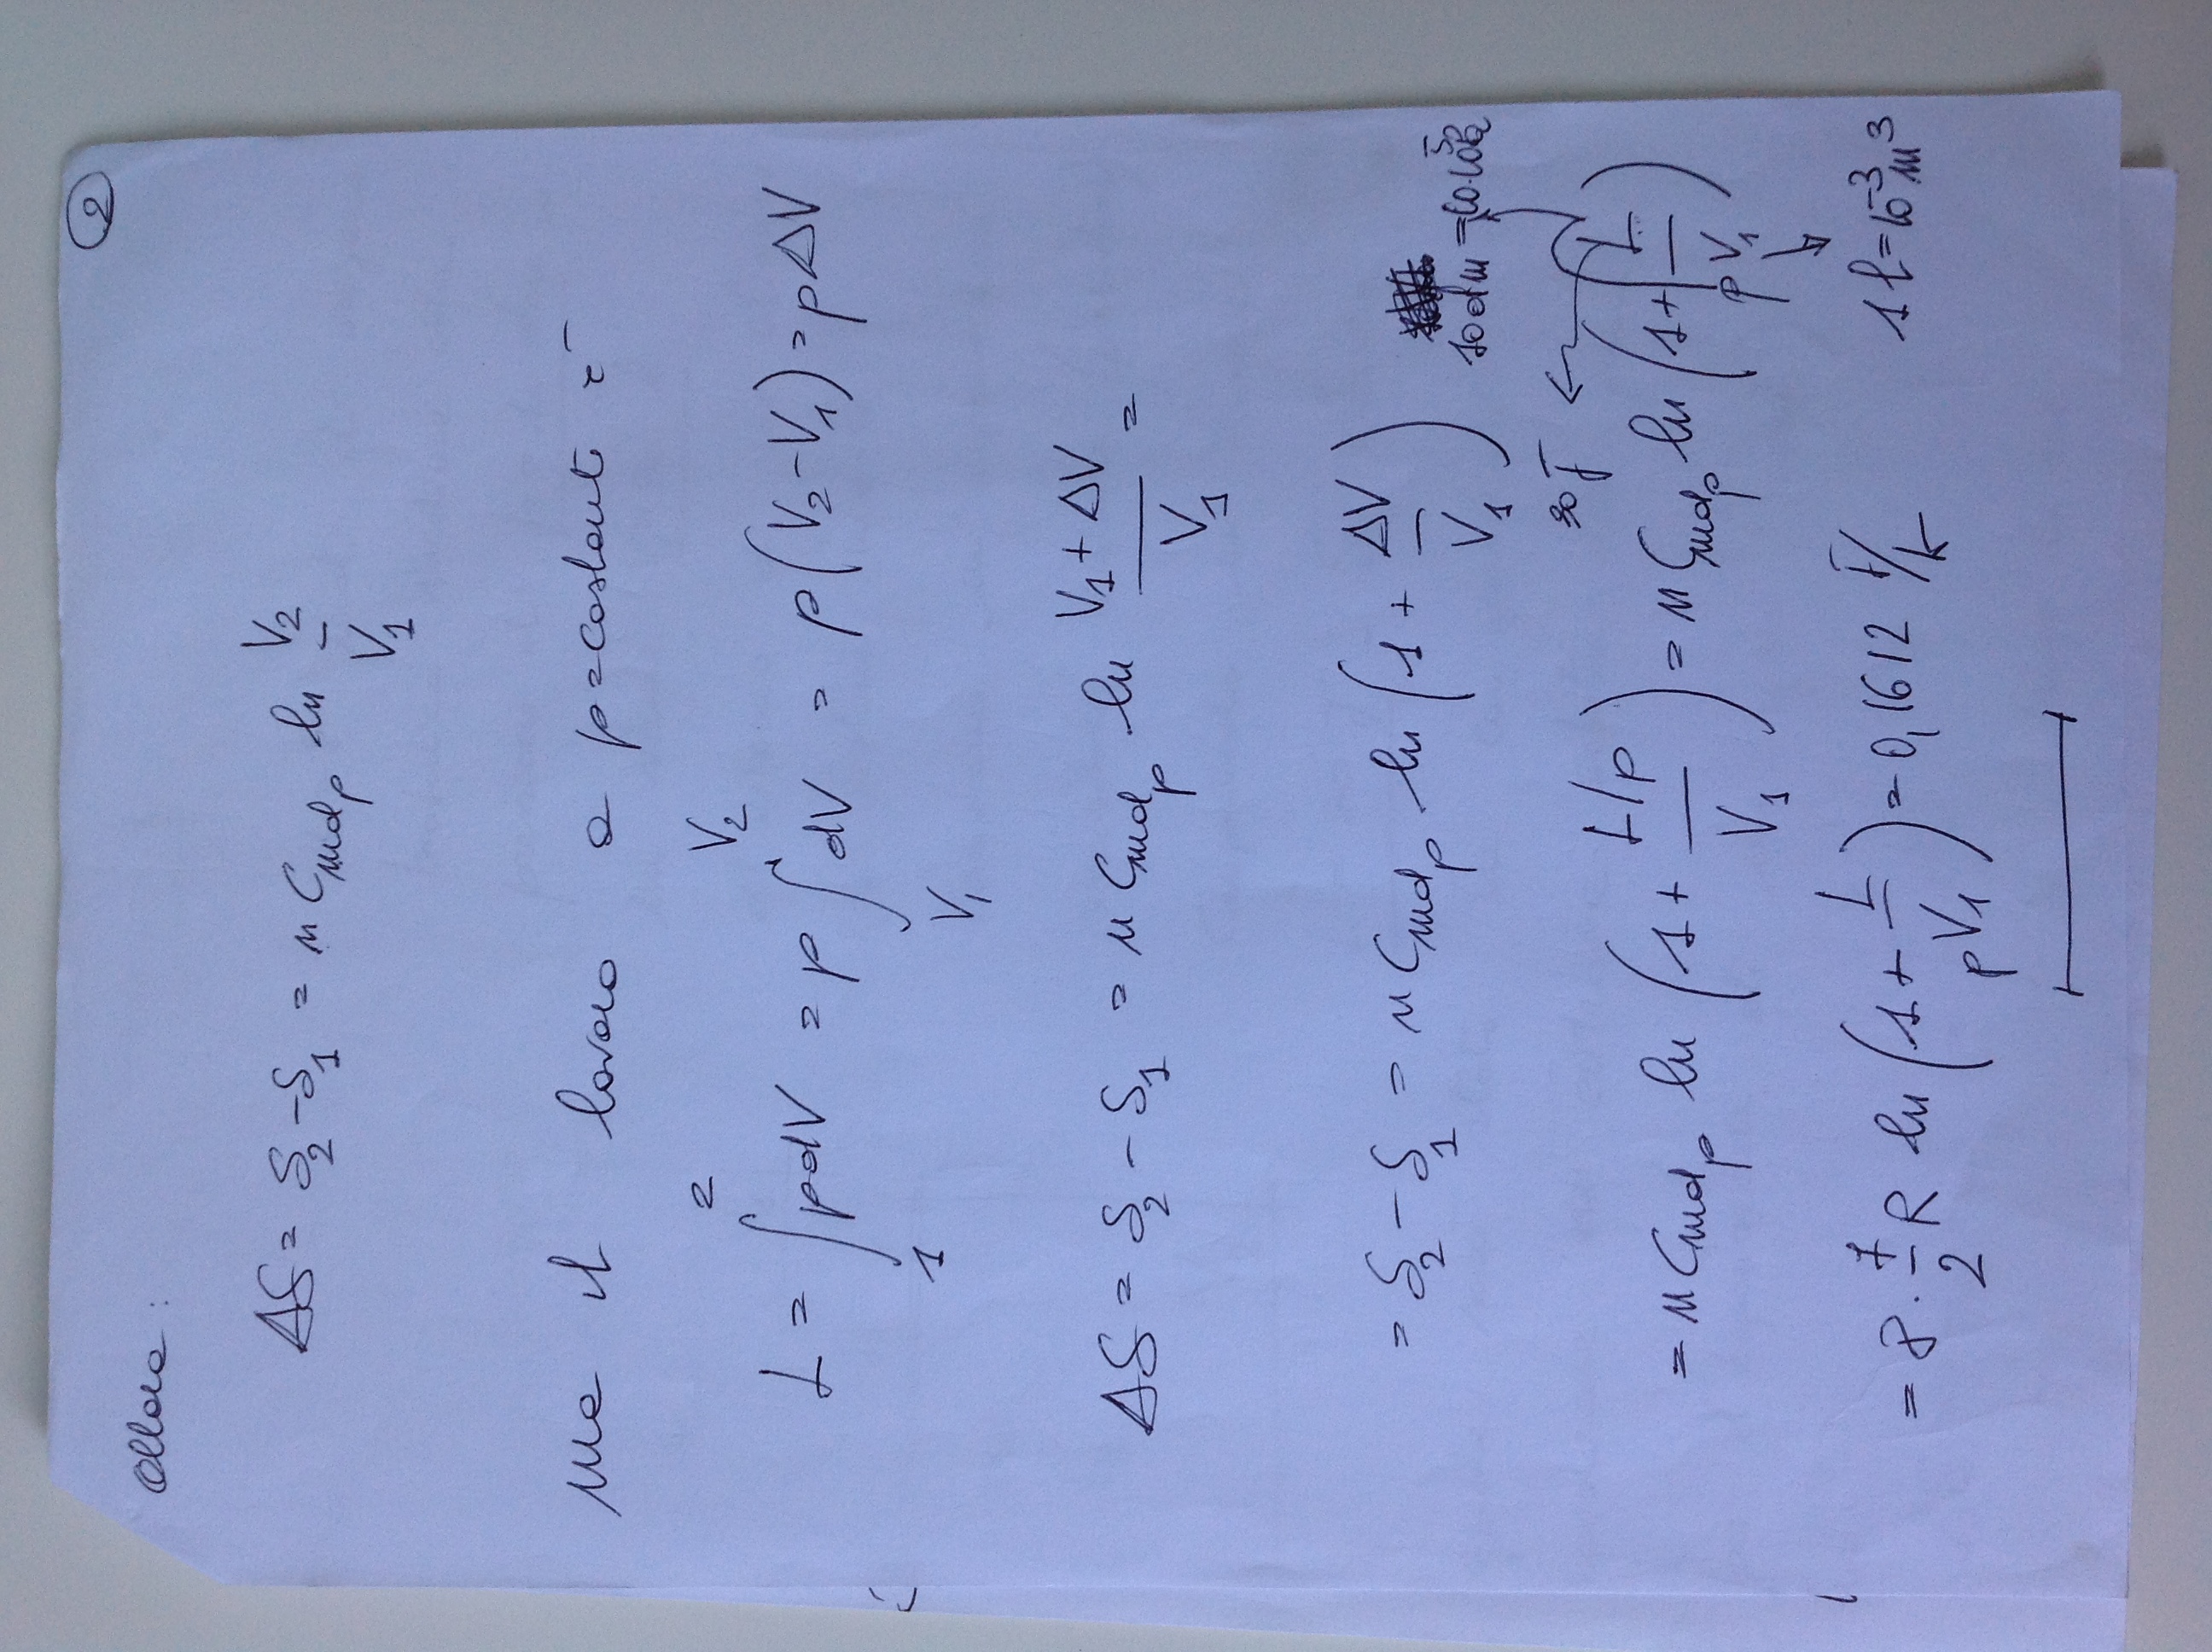 2
Allora :
ΔS = S₂ - S₁ = n C_mol_p ln V₂/V₁
Ma il lavoro a p=costante è
L = ∫₁² p dV = p ∫_V₁^V₂ dV = p (V₂ - V₁) = p ΔV
ΔS = S₂ - S₁ = n C_mol_p ln (V₁ + ΔV)/V₁ =
= S₂ - S₁ = n C_mol_p ln (1 + ΔV/V₁)
10 atm = 10·10⁵ Pa
J ←
= n C_mol_p ln (1 + (L/p)/V₁) = n C_mol_p ln (1 + L/(p V₁))
= 8 · 7/2 R ln (1 + L/(pV₁)) = 0,1612 J/K
1 l = 10⁻³ m³